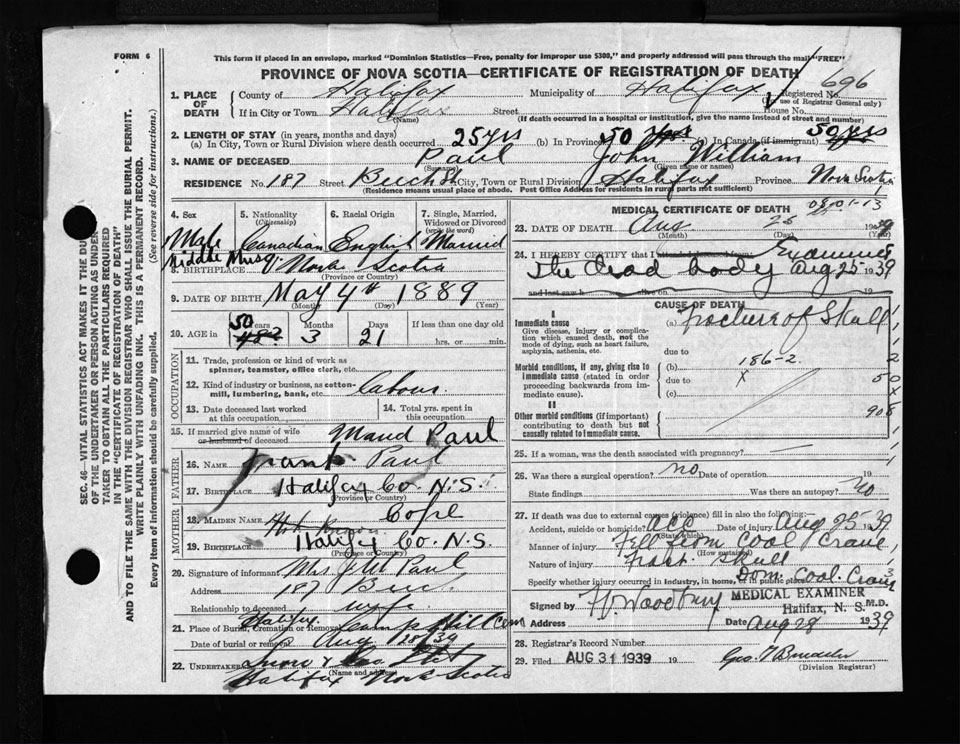 FORM 6
This form if placed in an envelope, marked "Dominion Statistics—Free, penalty for improper use $300," and properly addressed will pass through the mail "FREE"
PROVINCE OF NOVA SCOTIA—CERTIFICATE OF REGISTRATION OF DEATH
696
1. PLACE OF DEATH
County of Halifax Municipality of Halifax Registered No.
(For use of Registrar General only)
If in City or Town Halifax Street House No.
(Name) (If death occurred in a hospital or institution, give the name instead of street and number)
2. LENGTH OF STAY (in years, months and days)
(a) In City, Town or Rural Division where death occurred 25 yrs (b) In Province 50 yrs (c) In Canada (if immigrant) 50 yrs
3. NAME OF DECEASED Paul John William
(Surname) (Given name or names)
RESIDENCE No. 187 Street Beech St City, Town or Rural Division Halifax Province Nova Scotia
(Residence means usual place of abode. Post Office Address for residents in rural parts not sufficient)
4. Sex
Male
5. Nationality (Citizenship)
Canadian
6. Racial Origin
English
7. Single, Married, Widowed or Divorced (write the word)
Married
8. BIRTHPLACE Middle Musq. Nova Scotia
(Province or Country)
9. DATE OF BIRTH May 4th 1889
(Month) (Day) (Year)
10. AGE in 50 Years 3 Months 21 Days If less than one day old
hrs. or min.
OCCUPATION
11. Trade, profession or kind of work as spinner, teamster, office clerk, etc.
12. Kind of industry or business, as cotton-mill, lumbering, bank, etc. labour
13. Date deceased last worked at this occupation
14. Total yrs. spent in this occupation
15. If married give name of wife or husband of deceased Maud Paul
FATHER
16. NAME Frank Paul
17. BIRTHPLACE Halifax Co. N.S.
(Province or Country)
MOTHER
18. MAIDEN NAME Cope
19. BIRTHPLACE Halifax Co. N.S.
(Province or Country)
20. Signature of informant Mrs J W Paul
Address 187
Relationship to deceased wife
21. Place of Burial, Cremation or Removal Halifax Camp Hill Cem
Date of burial or removal Aug 39
22. UNDERTAKER
(Name and address)
Halifax Nova Scotia
MEDICAL CERTIFICATE OF DEATH
0801-13
23. DATE OF DEATH Aug 25 1939
(Month) (Day) (Year)
24. I HEREBY CERTIFY that I Examined
the dead body Aug 25 1939
and last saw h
CAUSE OF DEATH
I
Immediate cause
Give disease, injury or complication which caused death, not the mode of dying, such as heart failure, asphyxia, asthenia, etc.
(a) Fracture of Skull
due to
Morbid conditions, if any, giving rise to immediate cause (stated in order proceeding backwards from immediate cause)
(b) 186-2
due to X
(c)
II
Other morbid conditions (if important) contributing to death but not causally related to immediate cause.
25. If a woman, was the death associated with pregnancy?
26. Was there a surgical operation? no Date of operation 19
State findings Was there an autopsy? no
27. If death was due to external causes (violence) fill in also the following:
Accident, suicide or homicide? acc Date of injury Aug 25 1939
(State which)
Manner of injury Fell from Coal Crane
(How sustained)
Nature of injury Fract. Skull
Specify whether injury occurred in industry, in home, or in public place Dom. Coal Crane
Signed by MEDICAL EXAMINER M.D.
Halifax, N. S.
Address Date Aug 28 1939
28. Registrar's Record Number
29. Filed AUG 31 1939 19
(Division Registrar)
SEC. 46—VITAL STATISTICS ACT MAKES IT THE DUTY OF THE UNDERTAKER OR PERSON ACTING AS UNDERTAKER TO OBTAIN ALL THE PARTICULARS REQUIRED IN THE "CERTIFICATE OF REGISTRATION OF DEATH" AND TO FILE THE SAME WITH THE DIVISION REGISTRAR WHO SHALL ISSUE THE BURIAL PERMIT.
WRITE PLAINLY WITH UNFADING INK. THIS IS A PERMANENT RECORD.
Every item of information should be carefully supplied. (See reverse side for instructions.)